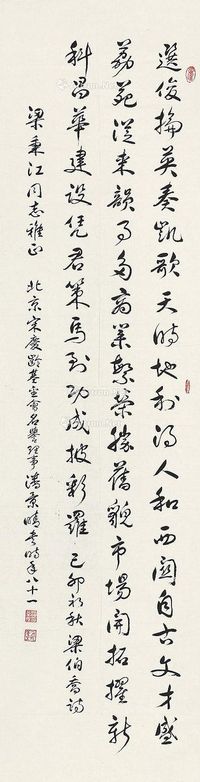 選俊掄英奏凱歌天時地利得人和西關自古文才盛
荔苑從來韻事多商業繁榮勝舊貌市場開拓擢新
科昌華建設凭君策馬到功成披彩羅 己卯初秋 梁伯喬詩
梁秉江同志雅正 北京宋慶齡基金會名譽理事潘景晴書時年八十一